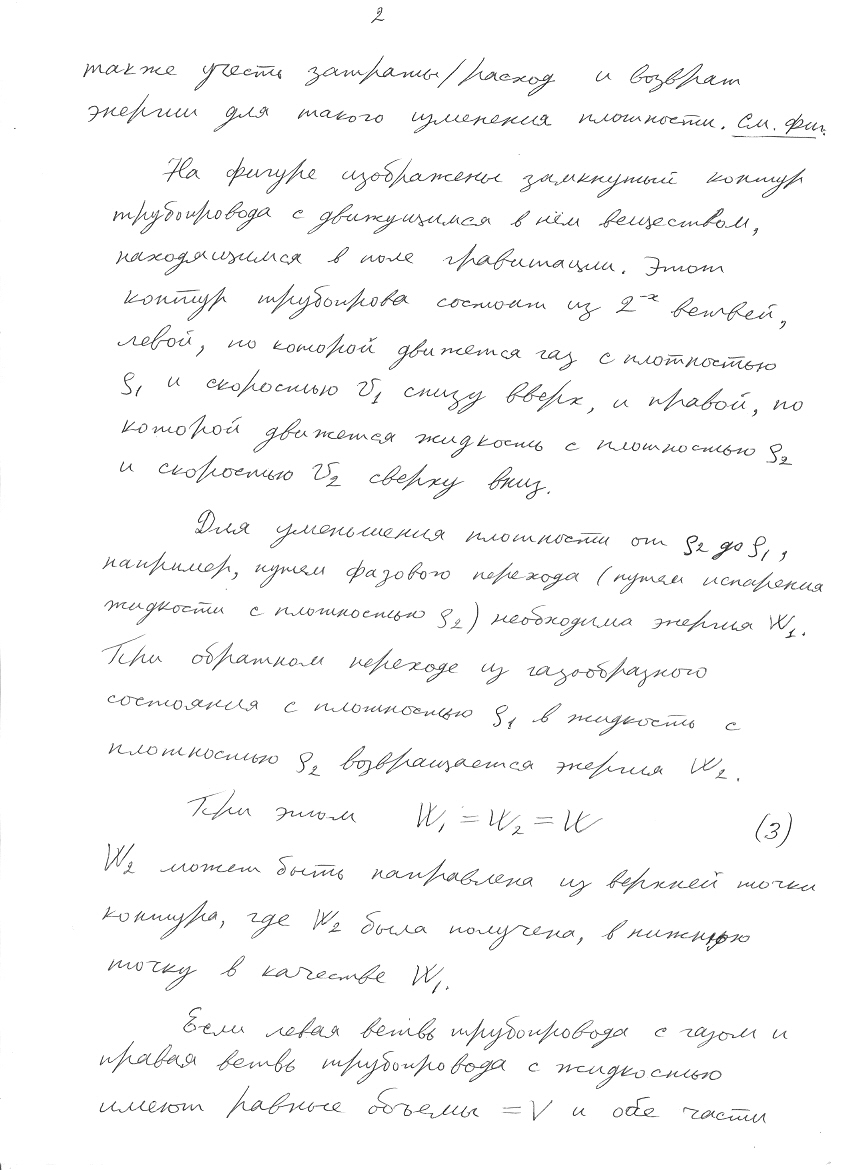 2
также учесть затраты/расход и возврат
энергии для такого изменения плотности. см. фиг.
На фигуре изображены замкнутый контур
трубопровода с движущимся в нём веществом,
находящимся в поле гравитации. Этот
контур трубопрова состоит из 2-х ветвей,
левой, по которой движется газ с плотностью
ρ₁ и скоростью V₁ снизу вверх, и правой, по
которой движется жидкость с плотностью ρ₂
и скоростью V₂ сверху вниз.
Для уменьшения плотности от ρ₂ до ρ₁,
например, путем фазового перехода (путем испарения
жидкости с плотностью ρ₂) необходима энергия W₁.
При обратном переходе из газообразного
состояния с плотностью ρ₁ в жидкость с
плотностью ρ₂ возвращается энергия W₂.
При этом W₁ = W₂ = W (3)
W₂ может быть направлена из верхней точки
контура, где W₂ была получена, в нижнюю
точку в качестве W₁.
Если левая ветвь трубопровода с газом и
правая ветвь трубопровода с жидкостью
имеют равные объемы = V и обе части